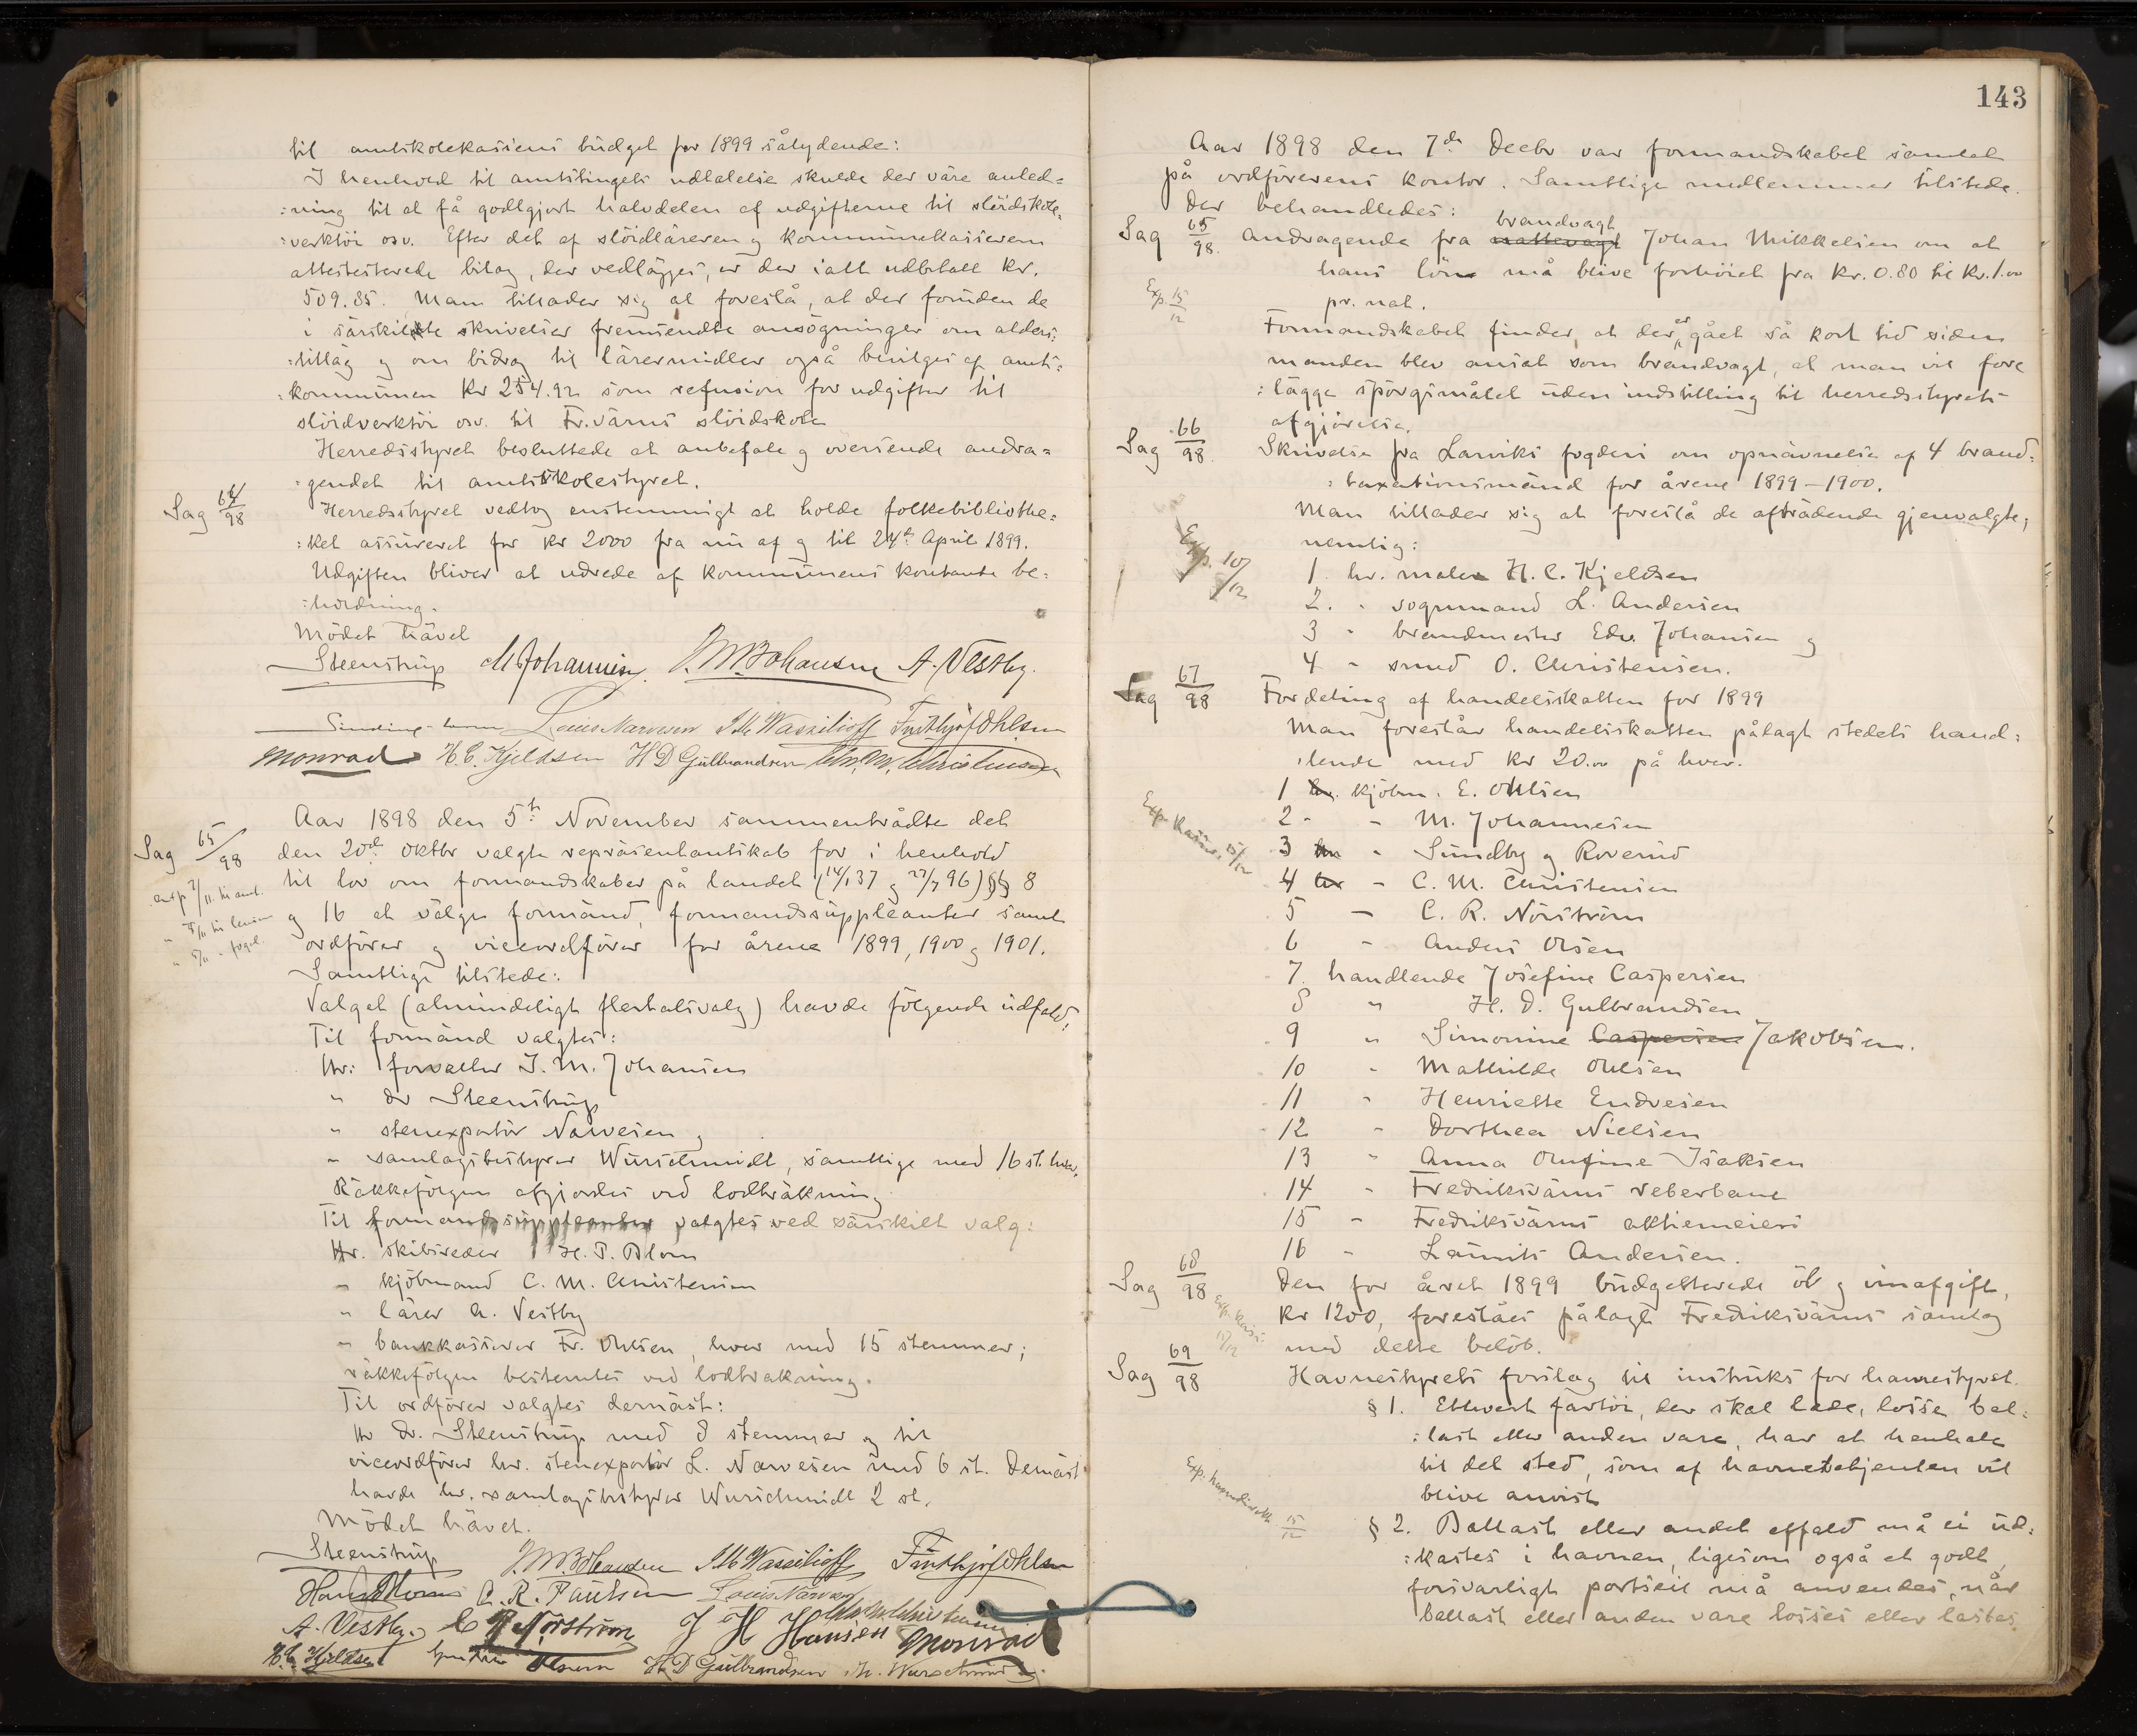 til amtskolekassens budget for 1899 sålydende:
I henhold til amtstingets udtalelse skulde der være anled=
:ning til at få godtgjort halvdelen af udgifterne til slöidskole,
:verktöi osv. Efter det af slöidläreren og kommunekassereren
attesterede bilag, der vedlägges, er der ialt udbetalt kr.
509.85. Man tillader sig at foreslå, at der foruden de
i särskildte skrivelser fremsendte ansögninger om alders:
:tilläg og om bidrag til lärermidler også bevilges af amts:
:kommunen kr 254.92 som refusion for udgifter til
slöidverktöi osv. til Fr.värns slöidskole
Herredsstyret besluttede at anbefale og oversende andra=
:gendet til amtsskolestyret.
Sag 64/98 Herredsstyret vedtog enstemmigt at holde folkebibliothe:
:ket assureret for kr 2000 fra nu af og til 24de April 1899.
Udgiften bliver at udrede af kommunens kontante be:
:holdning.
Mödet hävet
Steenstrup M Johannesen. J. M. Johansen A. Vestby.
Louis Narvesen Wassilioff Frithjof Ohlsen
Monrad H. C. Kjeldsen H D Gulbrandsen Chr. M. Christensen
Sag 65/98 Aar 1898 den 5te November sammentrådte det
den 20de Oktbr valgte repräsentantskab for i henhold
til lov om formandskaber på landet (14/1 37 og 27/7 96) §§ 8
og 16 at välge formänd, formandssuppleanter samt
ordförer og viceordförer for årene 1899, 1900 og 1901.
Samtlige tilstede:
Valget (almindeligt flertalsvalg) havde fölgende udfald:
Til formänd valgtes:
Hr. forvalter J. M. Johansen
" dr Steenstrup
" stenexportör Narvesen og
" samlagsbestyrer Wurschmidt, samtlige med 16 st. hver.
Räkkefölgen afgjordes ved lodträkning
Til formandssuppleanter valgtes ved särskilt valg:
Hr. skibsreder H. P. Blom
" kjöbmand C. M. Christensen
" lärer A. Vestby
" bankkasserer Fr. Ohlsen, hver med 15 stemmer;
räkkefölgen bestemtes ved lodträkning.
Til ordförer valgtes dernäst:
Hr Dr. Steenstrup med 8 stemmer og til
viceordförer hr. stenexportör L. Narvesen med 6 st. Dernäst
havde hr. samlagsbestyrer Wurschmidt 2 st.
Mödet hävet.
Steenstrup J. M. Johansen Wassilioff Frithjof Ohlsen
Hans Blom C. R. Paulsen Louis Narvesen Chr. M. Christensen
A. Vestby. C R Norström J H Hansen Monrad
H. C. Kjeldsen H D Gulbrandsen Th. Wurschmidt
143
Aar 1898 den 7de Decbr var formandskabet samlet
på ordförerens kontor. Samtlige medlemmer tilstede.
Der behandledes:
brandvagt
Sag 65/98. Andragende fra nattevagt Johan Mikkelsen om at
hans lön må blive forhöiet fra kr. 0.80 til kr. 1.00
Exp. 15/12 pr. nat.
Formandskabet finder, at der er gået så kort tid siden
manden blev ansat som brandvagt, at man vil fore
:lägge spörgsmålet uden indstilling til herredsstyrets
afgjörelse.
Sag 66/98. Skrivelse fra Larviks fogderi om opnävnelse af 4 brand:
:taxationsmänd for årene 1899–1900.
Man tillader sig at foreslå de afträdende gjenvalgte,
Exp. 10/12 nemlig:
1. hr. maler H. C. Kjeldsen
2. " vognmand L. Andersen
3 " brandmester Edv. Johansen og
4 " smed O. Christensen.
Sag 67/98 Fordeling af handelsskatten for 1899
Man foreslår handelsskatten pålagt stedets hand:
:lende med kr 20.00 på hver.
1 hr. kjöbm. E. Ohlsen
2 " " M. Johannesen
Exp. kasserer 15/12
3 hr " Sundby og Roverud
4 hr " C. M. Christensen
5 " C. R. Norström
6 " Anders Olsen
7. handlende Josefine Caspersen
8 " H. D. Gulbrandsen
9 " Simonine Caspersen Jakobsen.
10 " Mathilde Ohlsen
11 " Henriette Endresen
12 " Dorthea Nielsen
13 " Anna Olufine Isaksen
14 " Fredriksvärns reberbane
15 " Fredriksvärns aktiemeieri
16 " Laurits Andersen.
Sag 68/98 Den for året 1899 budgetterede öl og vinafgift,
kr 1200, foreslåes pålagt Fredriksvärns samlag
med dette belöb.
Sag 69/98 Havnestyrets forslag til instruks for havnestyret.
§ 1. Ethvert fartöi, der skal lade, losse bal:
:last eller anden vare, har at henhale
til det sted, som af havnebetjenten vil
blive anvist
15/12
§ 2. Ballast eller andet affald må ei ud:
:kastes i havnen, ligesom også et godt,
forsvarligt portseil må anvendes, når
ballast eller anden vare losses eller lastes.